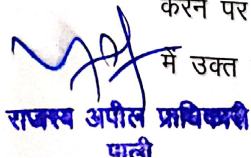 करने पर
में उक्त
राजस्व अपील प्राधिकारी
पाली